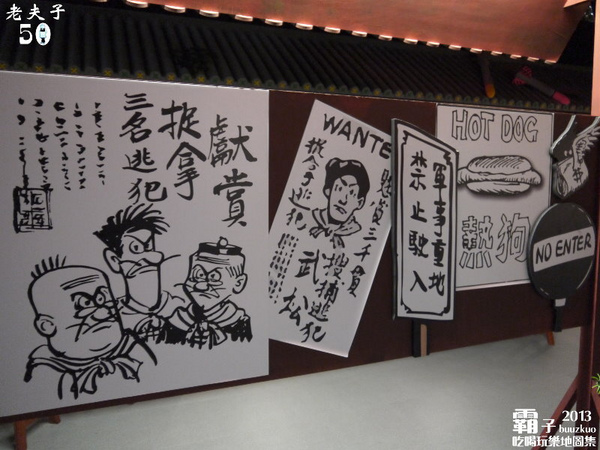 老夫子
50
獻賞
捉拿
三名逃犯
WANTE
懸賞三千貫
捉拿逃犯
武松
搜捕逃犯
軍事重地
禁止駛入
HOT DOG
熱狗
NO ENTER
霸子 2013
buuzkuo
吃喝玩樂地圖集